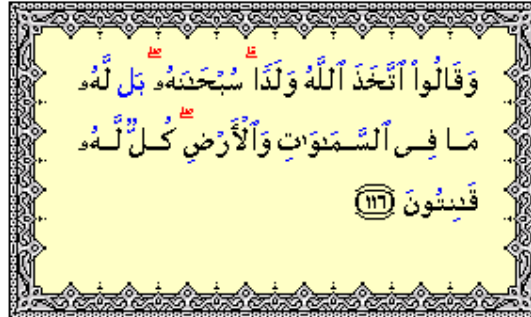 وَقَالُوا۟ ٱتَّخَذَ ٱللَّهُ وَلَدًۭا ۗ سُبْحَـٰنَهُۥ ۖ بَل لَّهُۥ
مَا فِى ٱلسَّمَـٰوَٰتِ وَٱلْأَرْضِ ۖ كُلٌّۭ لَّهُۥ
قَـٰنِتُونَ ﴿١١٦﴾